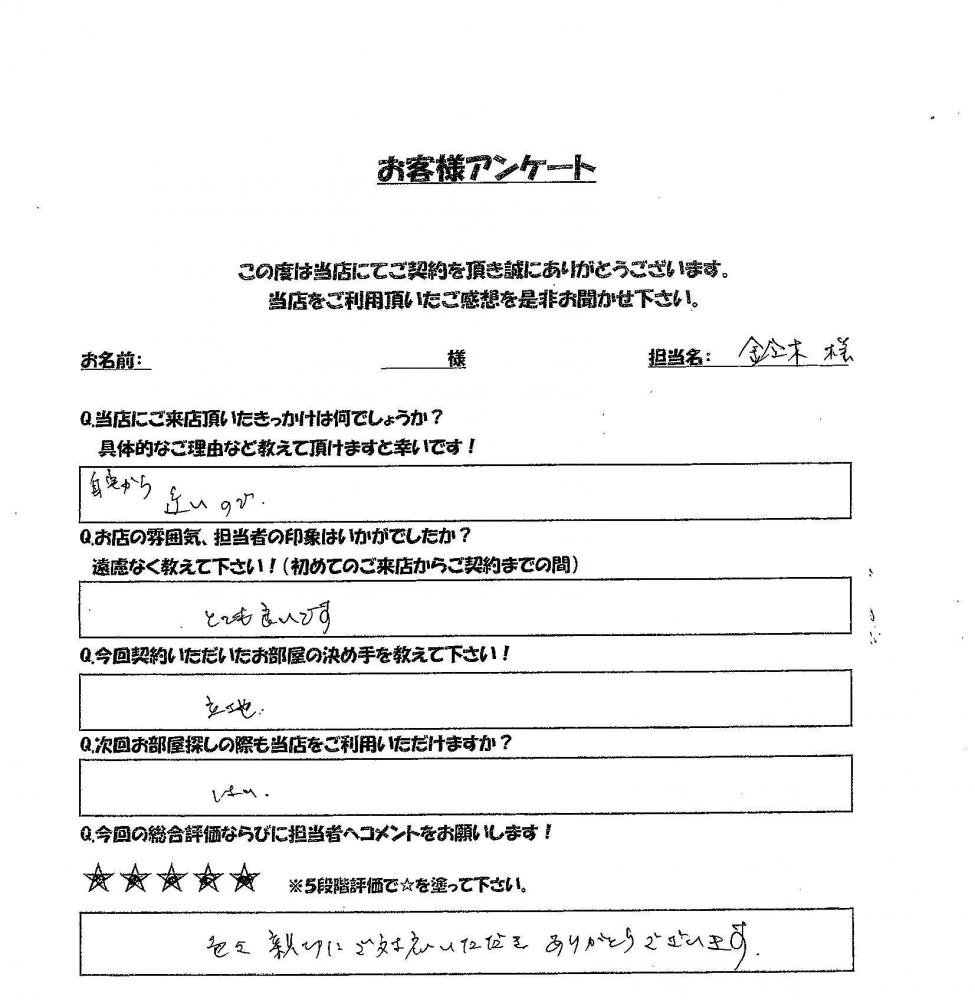 お客様アンケート
この度は当店にてご契約を頂き誠にありがとうございます。
当店をご利用頂いたご感想を是非お聞かせ下さい。
お名前: 様 担当名: 鈴木 様
Q.当店にご来店頂いたきっかけは何でしょうか?
具体的なご理由など教えて頂けますと幸いです!
自宅から
近いので.
Q.お店の雰囲気、担当者の印象はいかがでしたか?
遠慮なく教えて下さい!(初めてのご来店からご契約までの間)
とても良いです
Q.今回契約いただいたお部屋の決め手を教えて下さい!
立地.
Q.次回お部屋探しの際も当店をご利用いただけますか?
はい.
Q.今回の総合評価ならびに担当者へコメントをお願いします!
★★★★★ ※5段階評価で☆を塗って下さい。
親切にご対応いただき ありがとうございます.